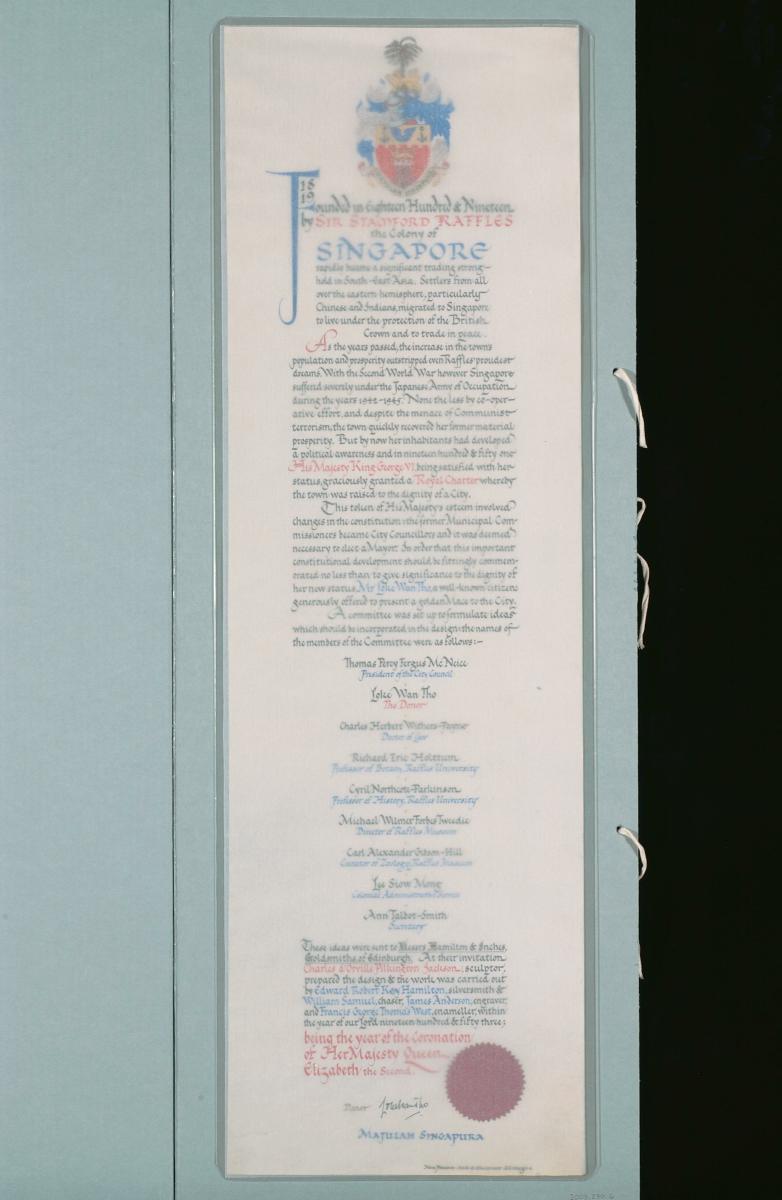 18
19
Founded in Eighteen Hundred & Nineteen
by SIR STAMFORD RAFFLES
the Colony of
SINGAPORE
rapidly became a significant trading strong-
hold in South-East Asia. Settlers from all
over the eastern hemisphere, particularly
Chinese and Indians, migrated to Singapore
to live under the protection of the British
Crown and to trade in peace.
As the years passed, the increase in the town's
population and prosperity outstripped even Raffles' proudest
dreams. With the Second World War however Singapore
suffered severely under the Japanese Army of Occupation
during the years 1942-1945. None the less by co-oper-
ative effort, and despite the menace of Communist
terrorism, the town quickly recovered her former material
prosperity. But by now her inhabitants had developed
a political awareness and in nineteen hundred & fifty one
His Majesty King George VI, being satisfied with her
status, graciously granted a Royal Charter whereby
the town was raised to the dignity of a City.
This token of His Majesty's esteem involved
changes in the constitution: the former Municipal Com-
missioners became City Councillors and it was deemed
necessary to elect a Mayor. In order that this important
constitutional development should be fittingly commem-
orated no less than to give significance to the dignity of
her new status, Mr Loke Wan Tho, a well-known citizen
generously offered to present a golden Mace to the City.
A committee was set up to formulate ideas
which should be incorporated in the design: the names of
the members of the Committee were as follows:-
Thomas Percy Fergus McNeice
President of the City Council
Loke Wan Tho
The Donor
Charles Herbert Withers-Payne
Doctor of Law
Richard Eric Holttum
Professor of Botany, Raffles University
Cyril Northcote-Parkinson
Professor of History, Raffles University
Michael Wilmer Forbes Tweedie
Director of Raffles Museum
Carl Alexander Gibson-Hill
Curator of Zoology, Raffles Museum
Lee Siow Mong
Colonial Administrative
Ann Talbot-Smith
Secretary
These ideas were sent to Messrs Hamilton & Inches,
Goldsmiths of Edinburgh. At their invitation
Charles d'Orville Pilkington Jackson, sculptor,
prepared the design & the work was carried out
by Edward Robert Roy Hamilton, silversmith &
William Samuel, chaser, James Anderson, engraver,
and Francis George Thomas West, enameller, within
the year of our Lord nineteen hundred & fifty three;
being the year of the Coronation
of Her Majesty Queen
Elizabeth the Second.
Donor
MAJULAH SINGAPURA